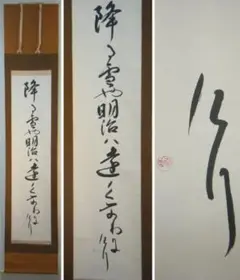 降る雪や明治ハ遠くなりに
けり
降る雪や明治ハ遠くなりに
けり
けり